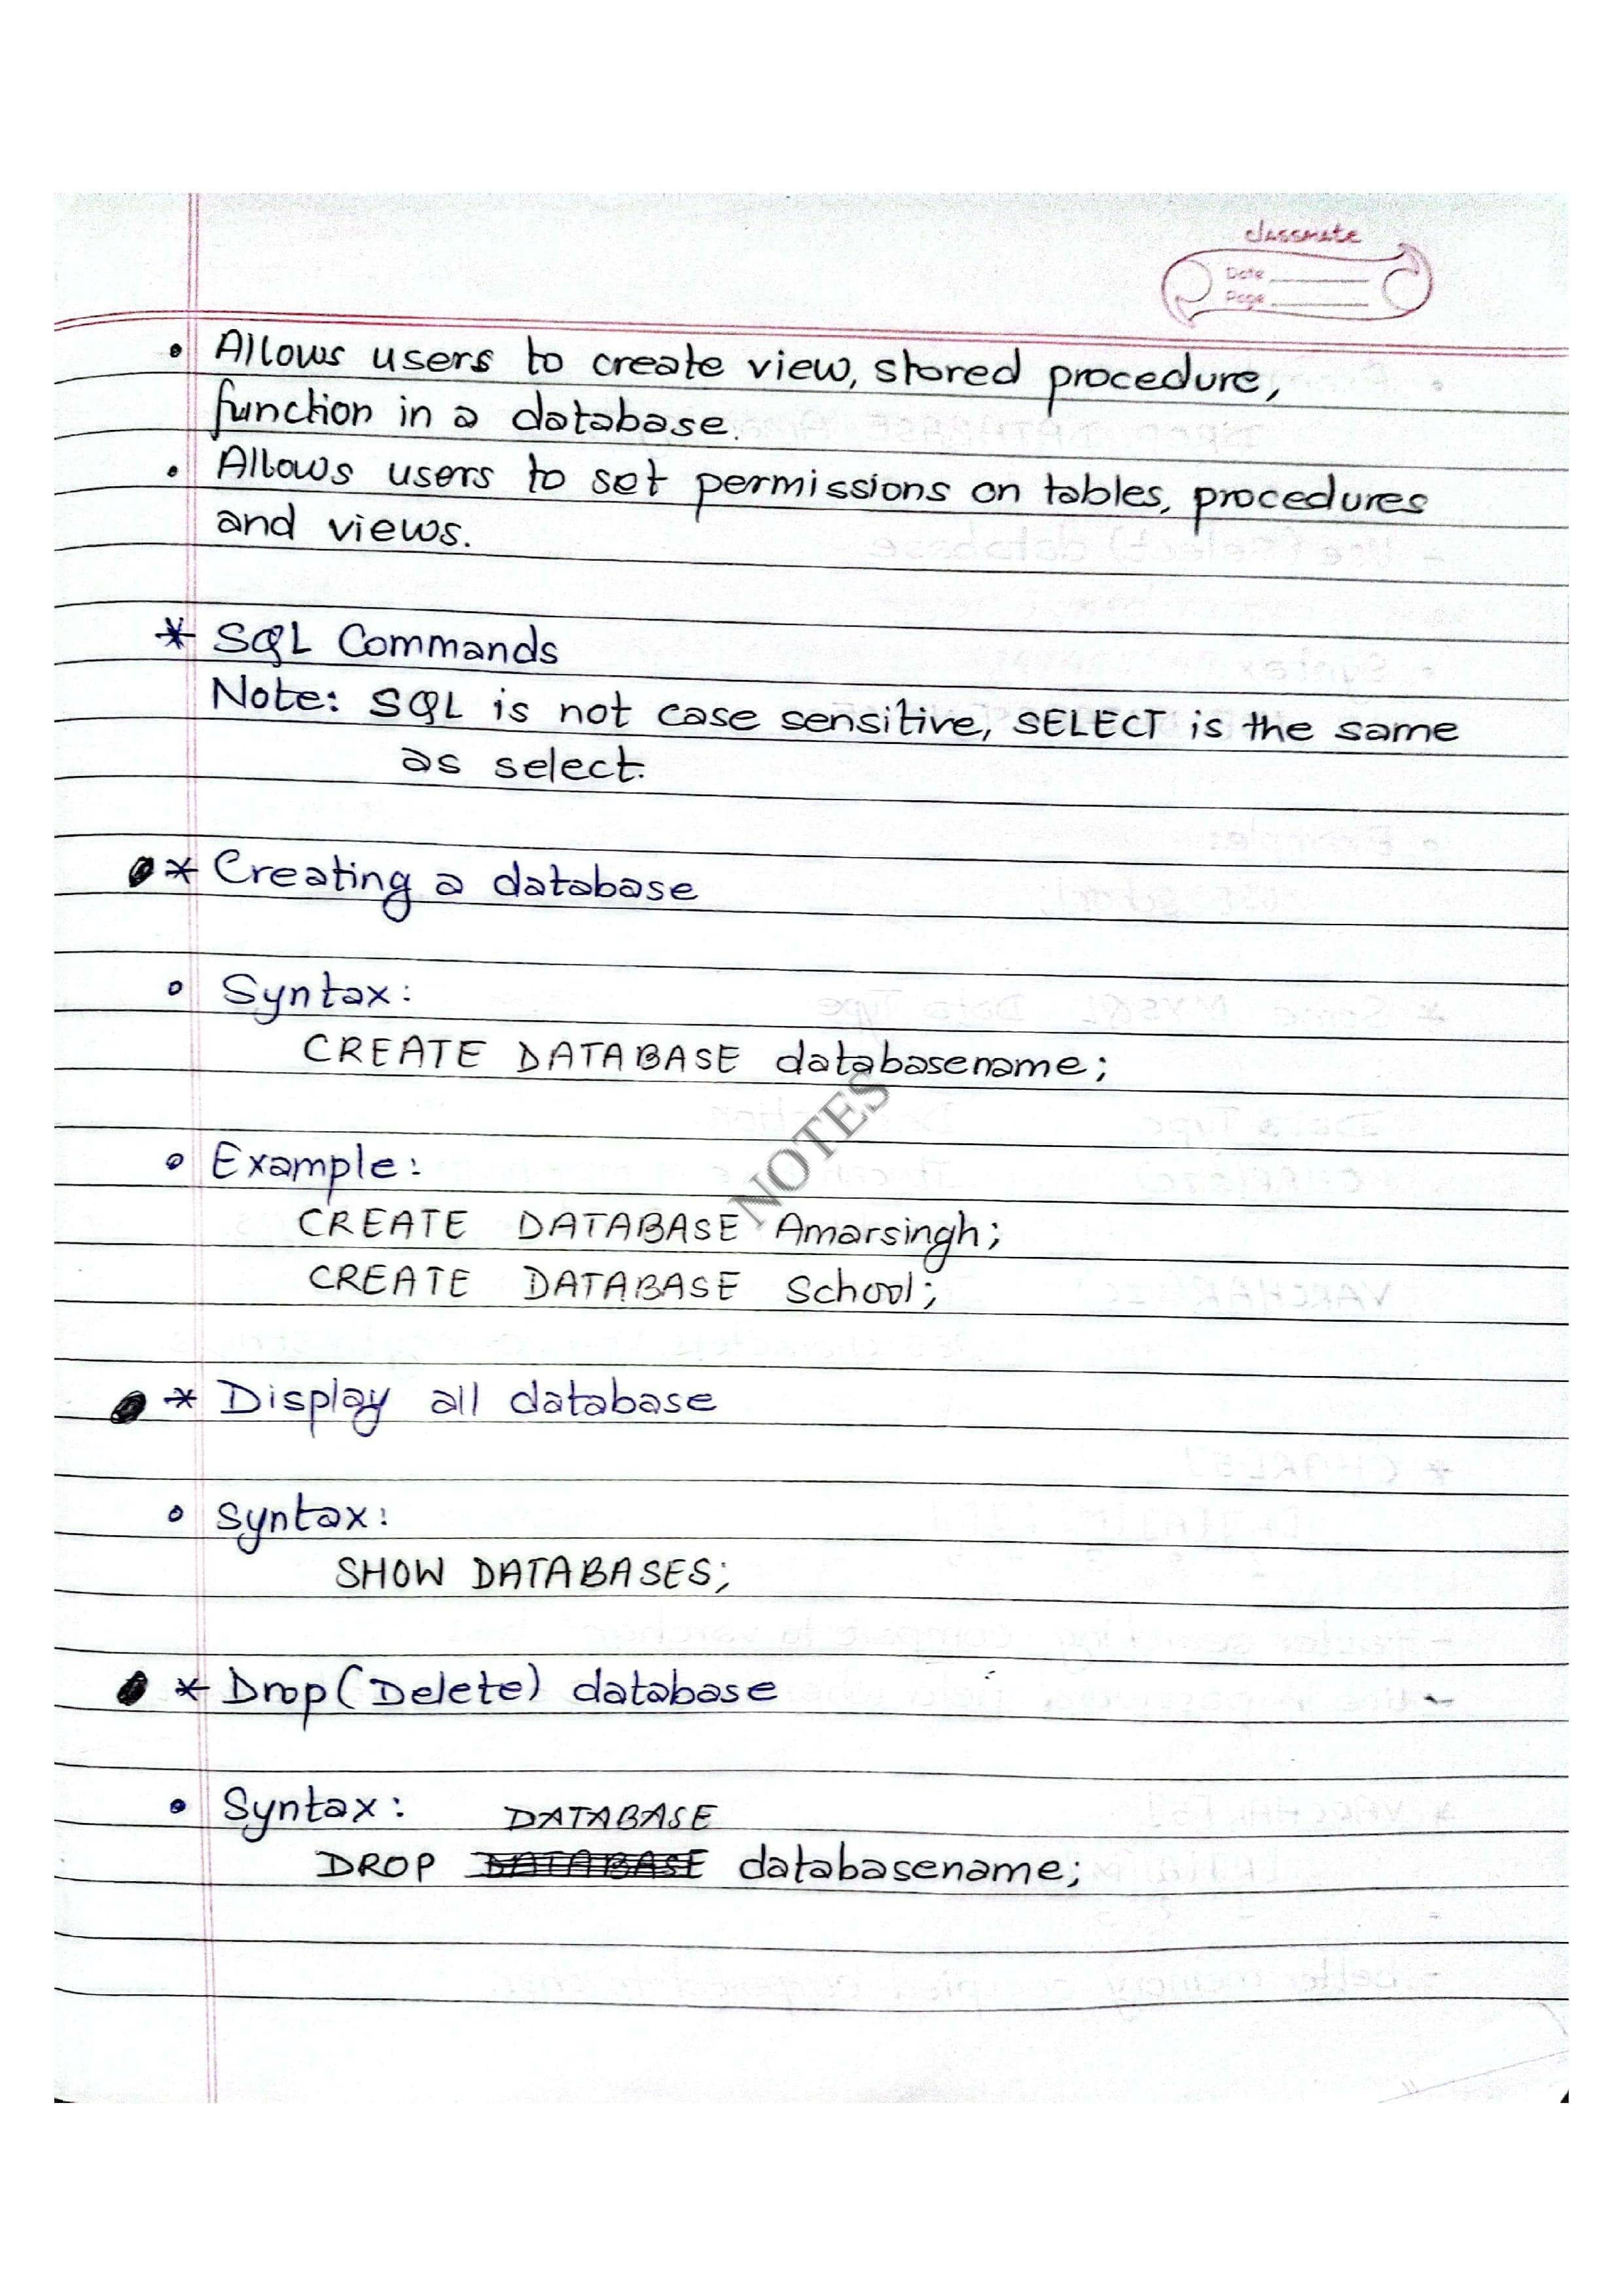 classmate
Date
Page
• Allows users to create view, stored procedure,
function in a database.
• Allows users to set permissions on tables, procedures
and views.
* SQL Commands
Note: SQL is not case sensitive, SELECT is the same
as select.
* Creating a database
• Syntax:
CREATE DATABASE databasename;
• Example:
CREATE DATABASE Amarsingh;
CREATE DATABASE School;
NOTES
* Display all database
• Syntax:
SHOW DATABASES;
* Drop (Delete) database
• Syntax:
DATABASE
DROP DATABASE databasename;